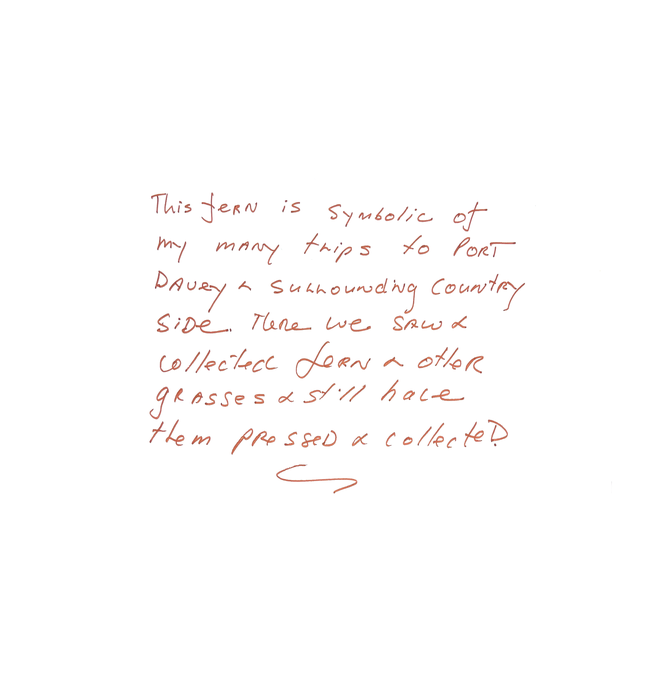 This fern is symbolic of
my many trips to Port
Davey & surrounding country
side. There we saw &
collected fern & other
grasses & still have
them pressed & collected